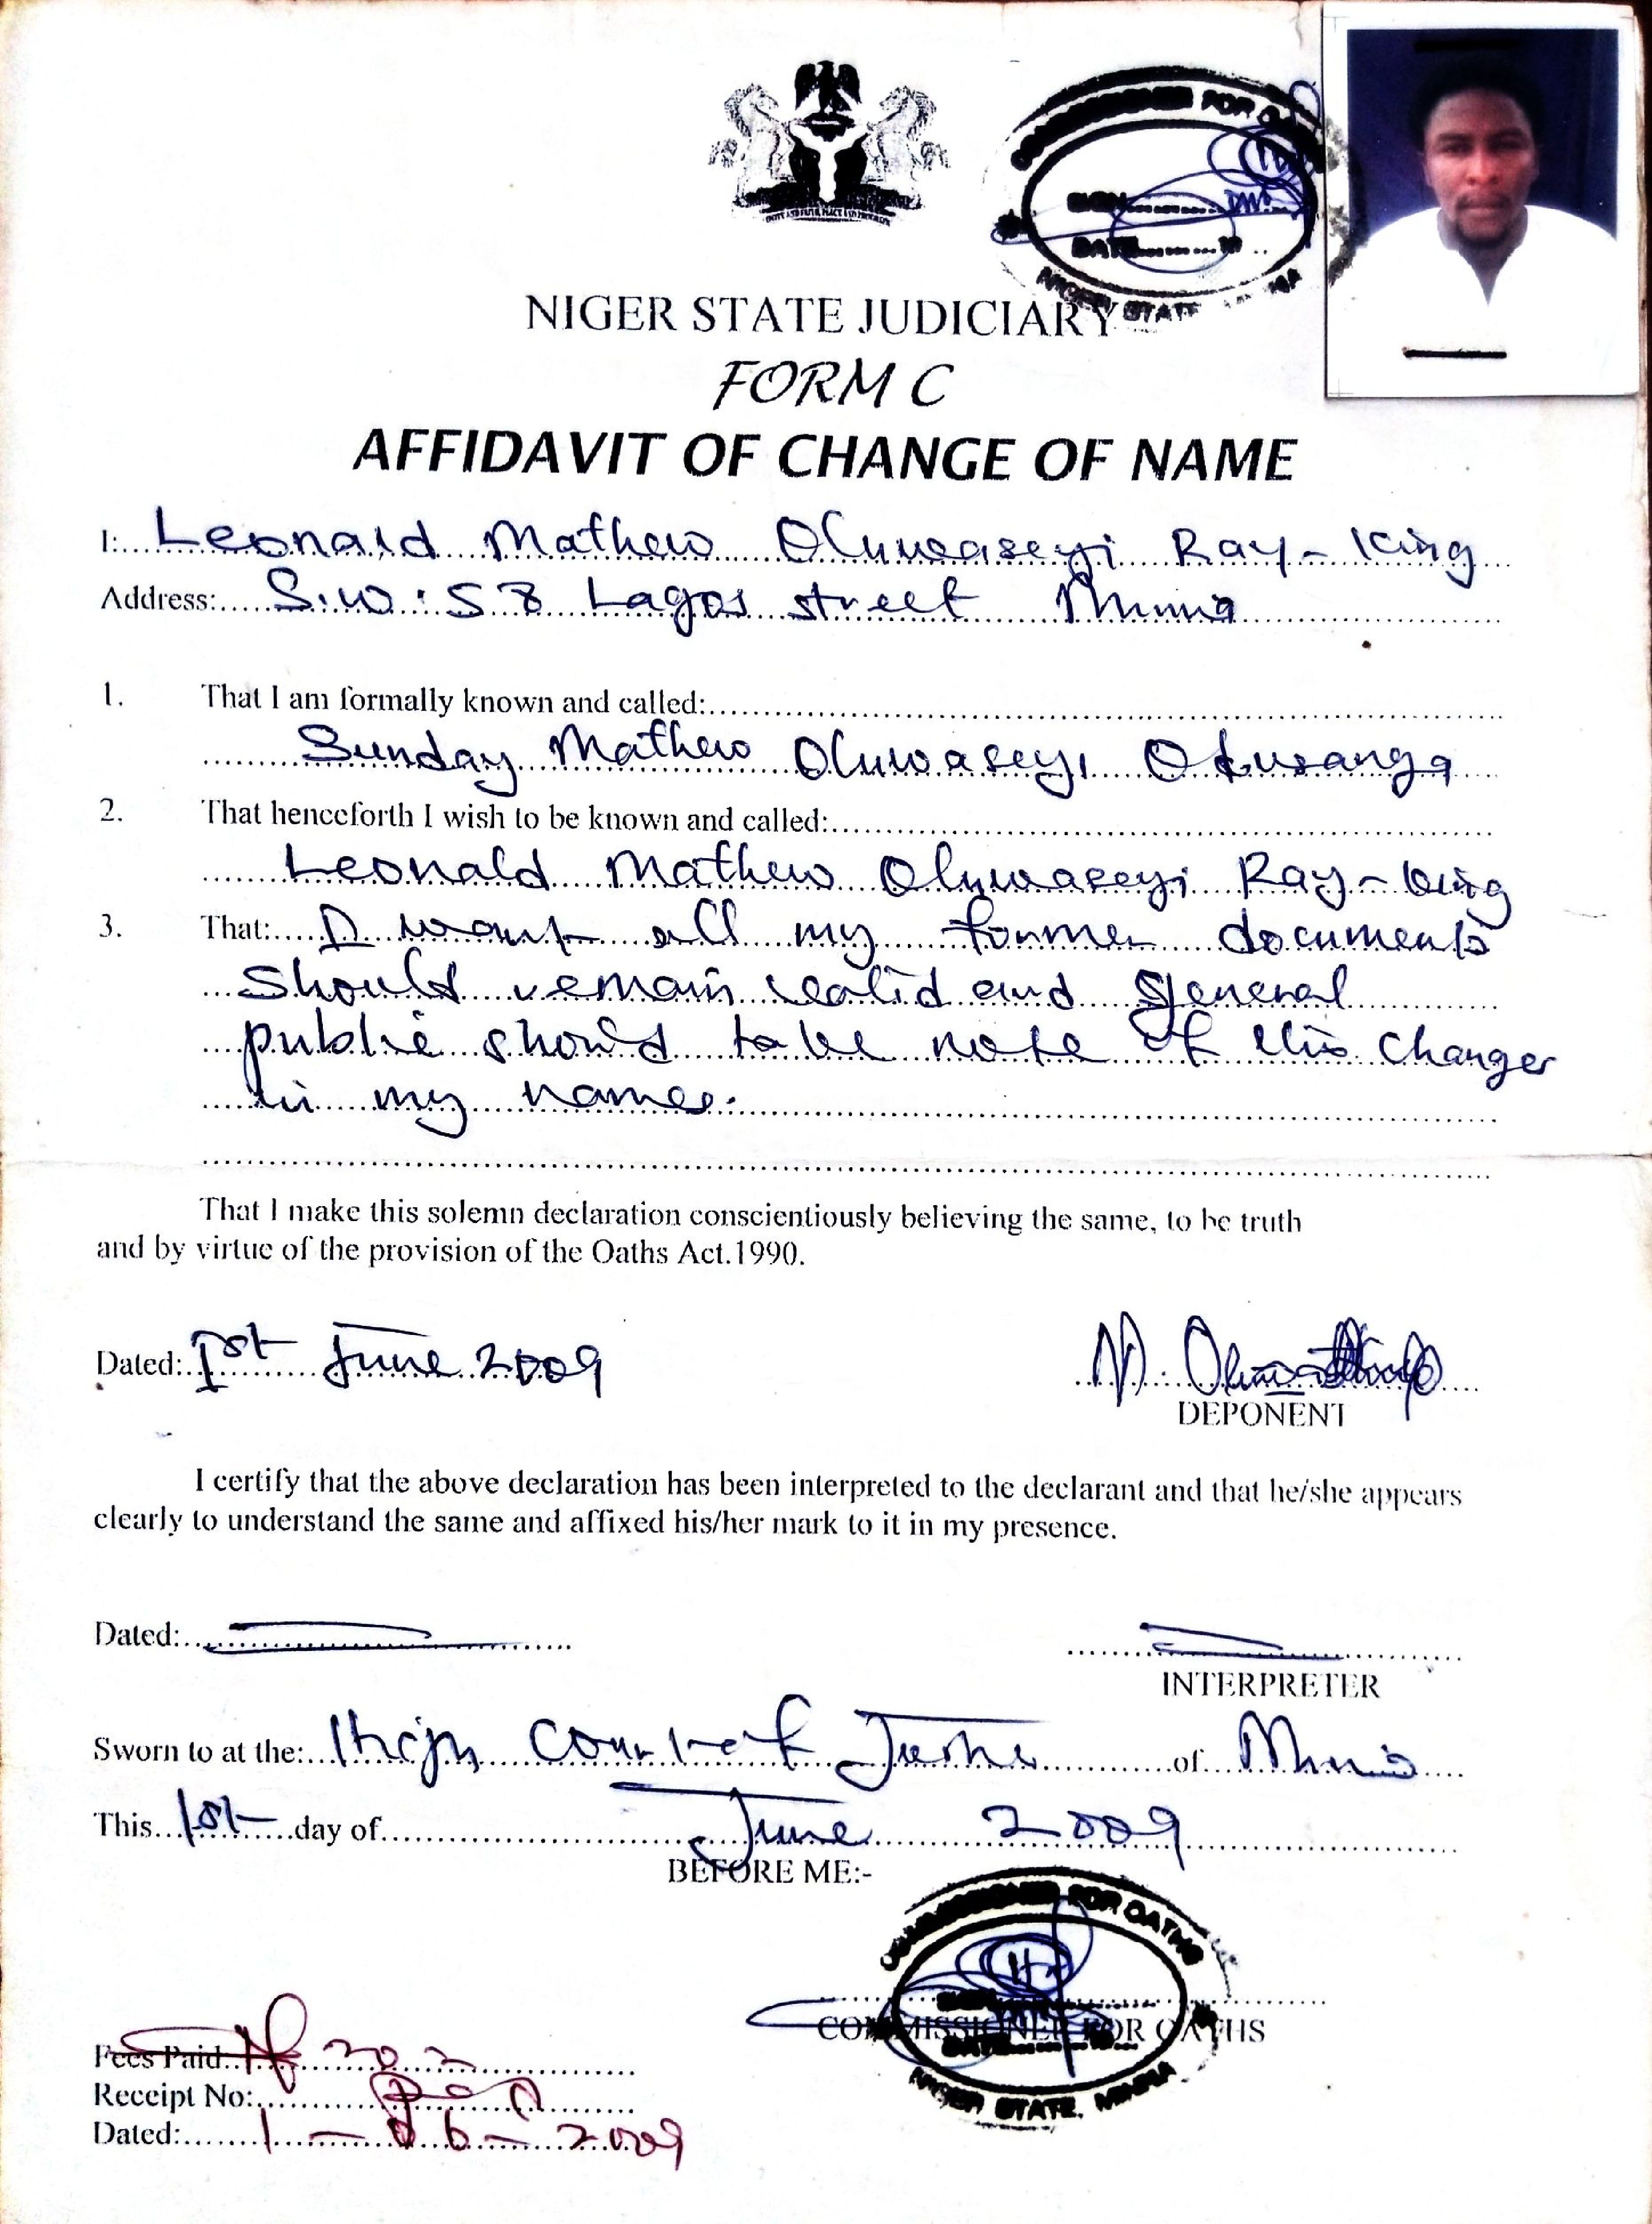 COMMISSIONER FOR OATHS
SIGN
DATE
NIGER STATE
NIGER STATE JUDICIARY
FORM C
AFFIDAVIT OF CHANGE OF NAME
I: Leonald Mathew Oluwaseyi Ray-King
Address: S.W: 57 Lagos street Minna
1. That I am formally known and called:
Sunday Mathew Oluwaseyi Odusanya
2. That henceforth I wish to be known and called:
Leonald Mathew Oluwaseyi Ray-King
3. That: I want all my former documents
should remain valid and general
public should take note of this changes
in my names.
That I make this solemn declaration conscientiously believing the same, to be truth
and by virtue of the provision of the Oaths Act.1990.
Dated: 1st June 2009
DEPONENT
I certify that the above declaration has been interpreted to the declarant and that he/she appears
clearly to understand the same and affixed his/her mark to it in my presence.
Dated:
INTERPRETER
Sworn to at the: High Court of Justice of Minna
This 1st day of June 2009
BEFORE ME:-
COMMISSIONER FOR OATHS
SIGN
COMMISSIONER FOR OATHS
DATE
NIGER STATE, MINNA
Fees Paid
Receipt No:
Dated: 1-06-2009